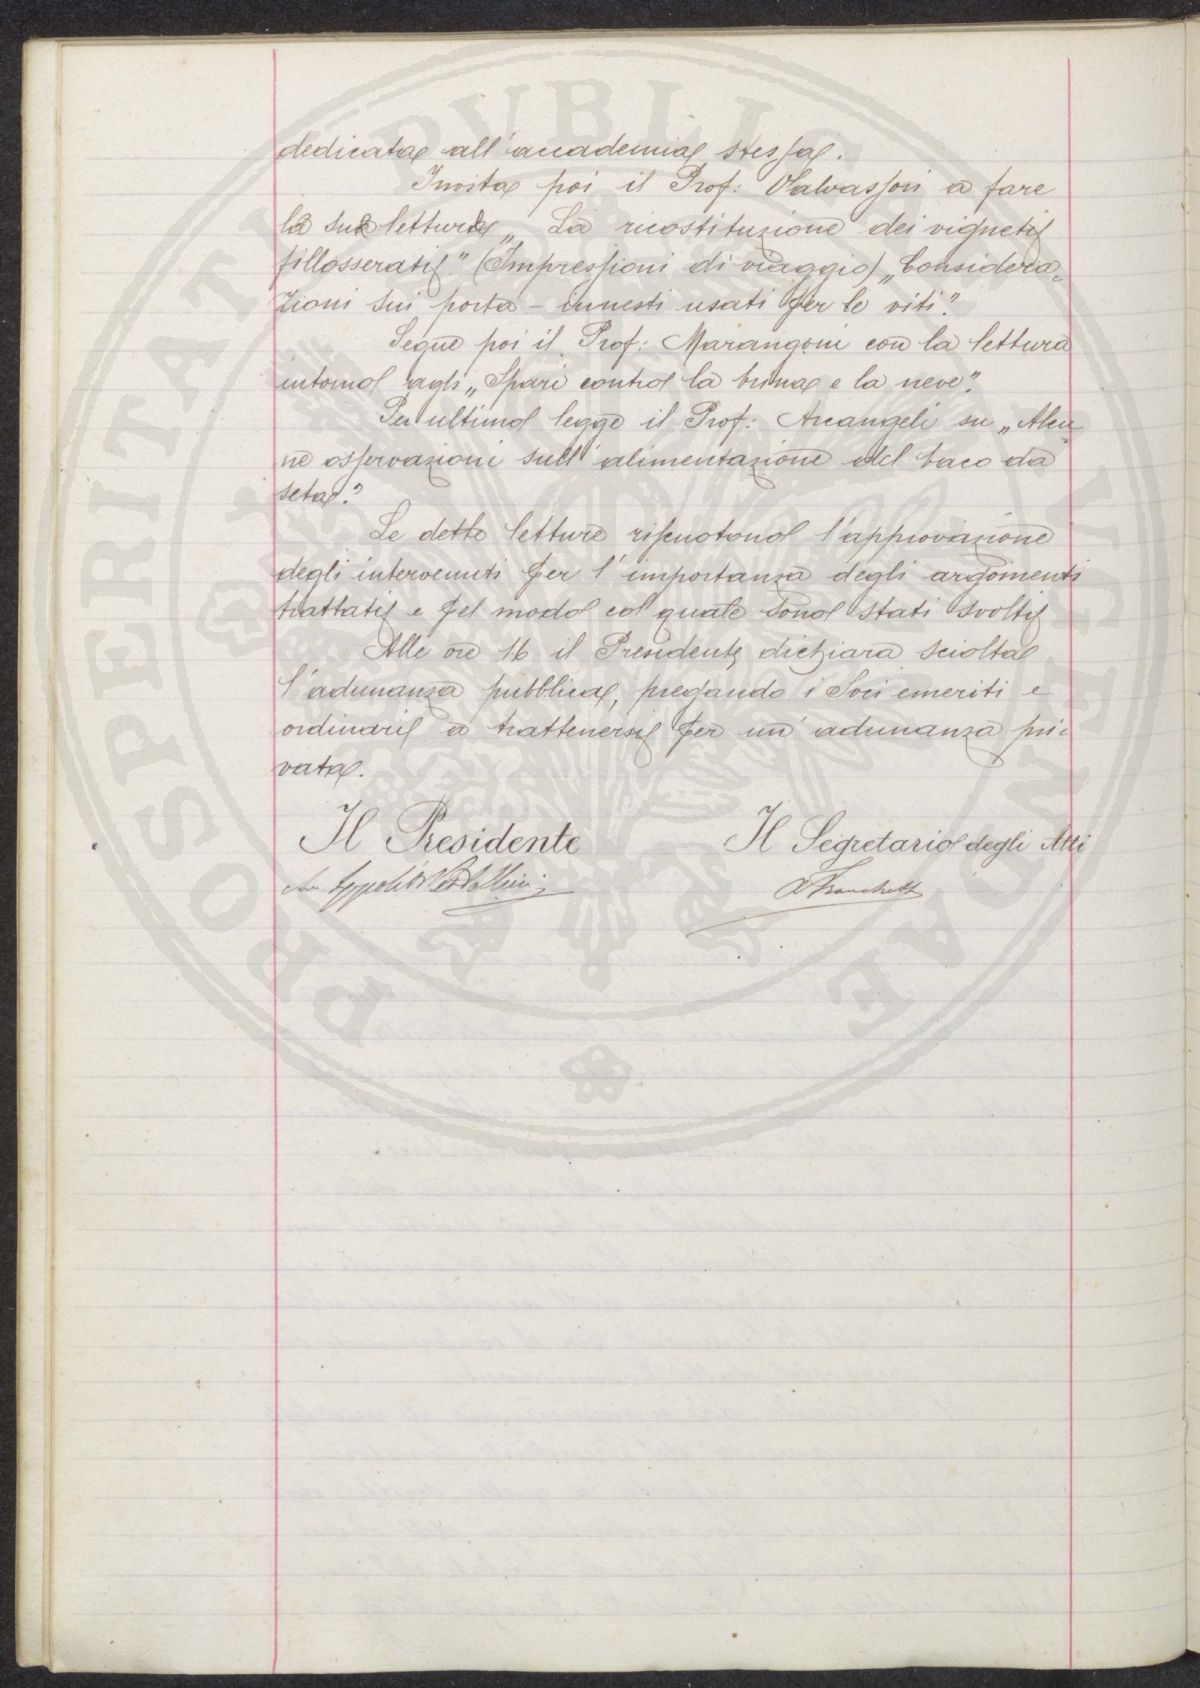 dedicata all'accademia stessa.
Invita poi il Prof: Valvassori a fare
la sua lettura „La ricostituzione dei vigneti
fillosserati" (Impressioni di viaggio) „Considera=
zioni sui porta-innesti usati per le viti".
Segue poi il Prof: Marangoni con la lettura
intorno agli „Spari contro la brina e la neve".
Per ultimo legge il Prof: Arcangeli su „Alcu=
ne osservazioni sull'alimentazione del baco da
seta".
Le dette letture riscuotono l'approvazione
degli intervenuti per l'importanza degli argomenti
trattati e pel modo col quale sono stati svolti
Alle ore 16 il Presidente dichiara sciolta
l'adunanza pubblica, pregando i Soci emeriti e
ordinarii a trattenersi per un'adunanza pri=
vata.
Il Presidente Il Segretario degli Atti
Ippolito Pestellini A Franchetti
PROSPERITATI PVBLICAE AVGENDAE